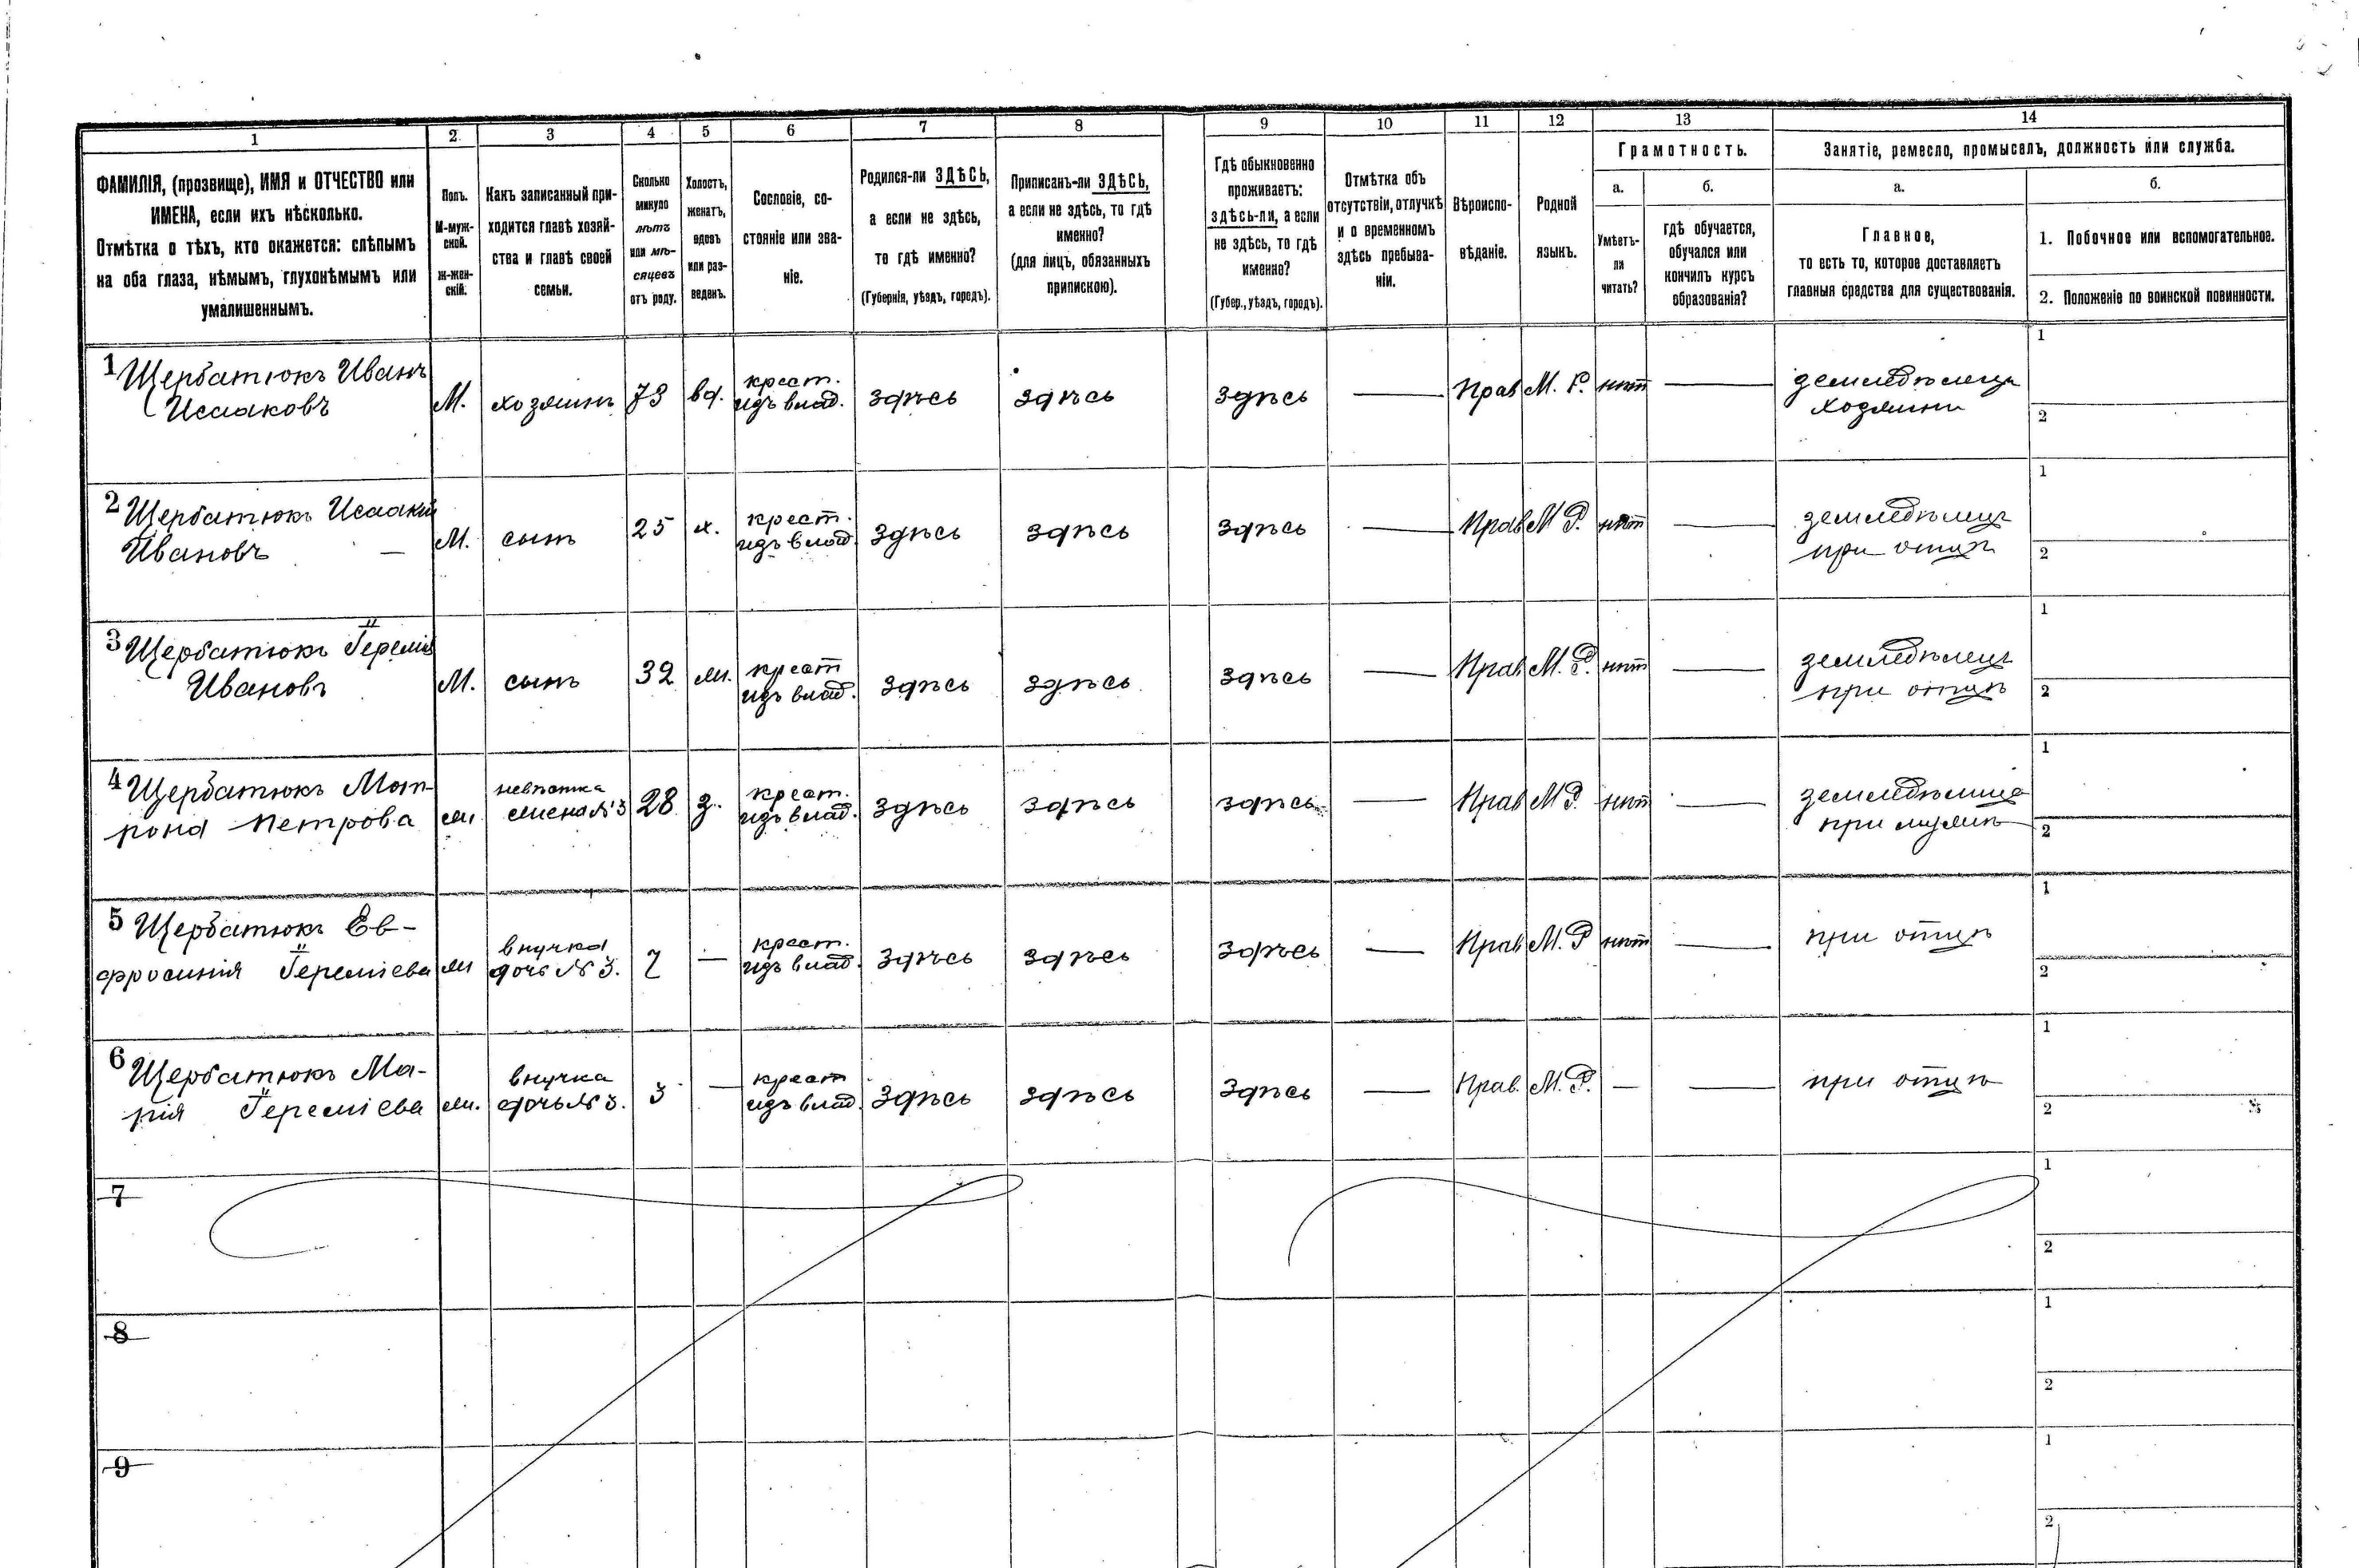 1 2 3 4 5 6 7 8 9 10 11 12 13 14
ФАМИЛІЯ, (прозвище), ИМЯ и ОТЧЕСТВО или
ИМЕНА, если ихъ нѣсколько.
Отмѣтка о тѣхъ, кто окажется: слѣпымъ
на оба глаза, нѣмымъ, глухонѣмымъ или
умалишеннымъ.
Полъ.
М-муж-
ской.
Ж-жен-
скій.
Какъ записанный при-
ходится главѣ хозяй-
ства и главѣ своей
семьи.
Сколько
минуло
лѣтъ
или мѣ-
сяцевъ
отъ роду.
Холостъ,
женатъ,
вдовъ
или раз-
веденъ.
Сословіе, со-
стояніе или зва-
ніе.
Родился-ли ЗДѢСЬ,
а если не здѣсь,
то гдѣ именно?
(Губернія, уѣздъ, городъ).
Приписанъ-ли ЗДѢСЬ,
а если не здѣсь, то гдѣ
именно?
(для лицъ, обязанныхъ
припискою).
Гдѣ обыкновенно
проживаетъ:
здѣсь-ли, а если
не здѣсь, то гдѣ
именно?
(Губер., уѣздъ, городъ).
Отмѣтка объ
отсутствіи, отлучкѣ
и о временномъ
здѣсь пребыва-
ніи.
Вѣроиспо-
вѣданіе.
Родной
языкъ.
Грамотность.
а.
Умѣетъ-
ли
читать?
б.
гдѣ обучается,
обучался или
кончилъ курсъ
образованія?
Занятіе, ремесло, промыселъ, должность или служба.
а.
Главное,
то есть то, которое доставляетъ
главныя средства для существованія.
б.
1. Побочное или вспомогательное.
2. Положеніе по воинской повинности.
1 Щербатюкъ Иванъ
Исааковъ
М.
хозяинъ
73
вд.
крест.
изъ влад.
здѣсь
здѣсь
здѣсь
—
Прав
М. Р.
нѣт
—
земледѣлецъ
хозяинъ
1
2
2 Щербатюкъ Исаакий
Ивановъ —
М.
сынъ
25
х.
крест.
изъ влад.
здѣсь
здѣсь
здѣсь
—
Прав
М Р.
нѣт
—
земледѣлецъ
при отцѣ
1
2
3 Щербатюкъ Іеремія
Ивановъ
М.
сынъ
32
ж.
крест
изъ влад.
здѣсь
здѣсь
здѣсь
—
Прав
М. Р.
нѣт
—
земледѣлецъ
при отцѣ
1
2
4 Щербатюкъ Мат-
рона Петрова
ж
невѣстка
жена №3
28
з.
крест.
изъ влад.
здѣсь
здѣсь
здѣсь
—
Прав
М Р.
нѣт
—
земледѣлица
при мужѣ
1
2
5 Щербатюкъ Ев-
фросинія Іереміева
ж
внучка
дочь № 3.
7
—
крест.
изъ влад.
здѣсь
здѣсь
здѣсь
—
Прав
М. Р
нѣт
—
при отцѣ
1
2
6 Щербатюкъ Ма-
рія Іереміева
ж.
внучка
дочь № 3.
3
—
крест
изъ влад.
здѣсь
здѣсь
здѣсь
—
Прав.
М. Р.
—
—
при отцѣ
1
2
7
1
2
8
1
2
9
1
2